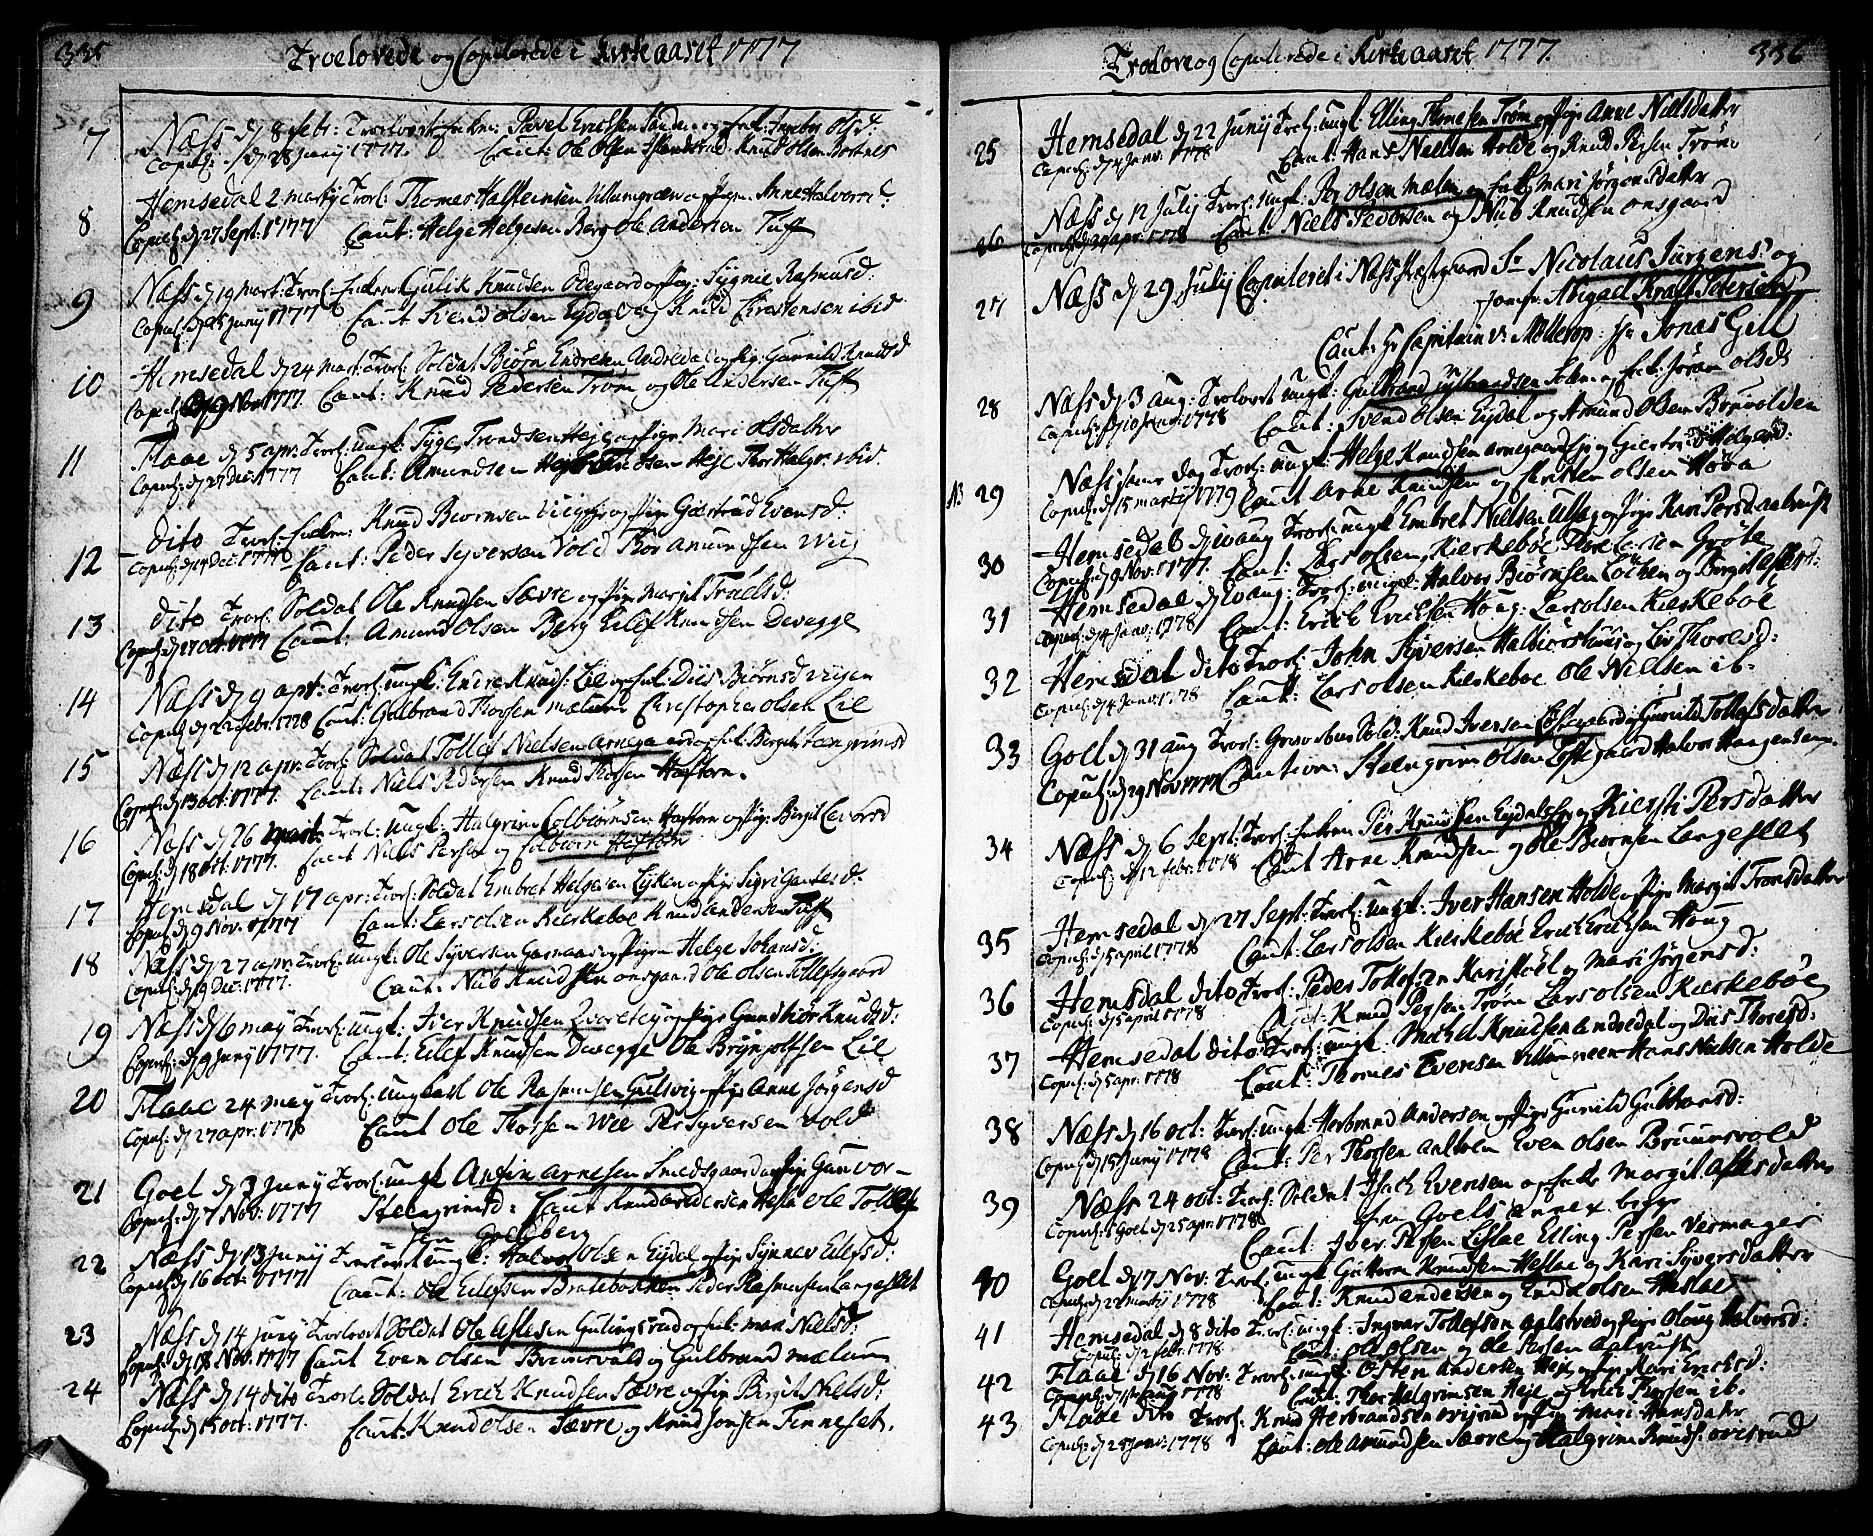 335 Troelovede og Copulerede i Kirkeaaret 1777
7 Næss d. 8 febr: Trolovt Enkem: Povel Erichsen og Enk: Ingebor Olsd:
Copul: d. 28 Junij 1777. Caut: Ole Olsen Knud Olsen
8 Hemsedal 2 martij Trol: Thomas Halsteinsen Ulsungreen og Pige Anne Halvorsd:
Copul: d. 27 Sept: 1777 Caut: Helge Helgesen Berg Ole Andersen Tuff
9 Næss d. 19 mart: Trol: Enkem: Gulik Knudsen Odegaard og Pige: Sygnie Rasmusd:
Copul: d. 25 Junij 1777 Caut Svend Olsen Eydal og Knud Christensen ibid
10 Hemsedal d. 24 mart: Trol: Soldat Biørn Endresen Andredal og Pig: Gunnild Knudsd
Copul: Nov: 1777. Caut: Knud Pedersen Trøm og Ole Andersen Tuff
11 Flaae d. 5 apr: Trol: ungk: Tyge Trondsen Heje og Pige Mari Olsdatter
Copul: d. 27 Dec: 1777 Caut: Amundsen Heje Thor Halgr: ibid.
12 dito Trol: Enkem: Knud Biørnsen og Pige Giertrud Evensd:
Copul: d. 14 Dec: 1777 Caut: Peder Syversen Vold Thor Amundsen Wiig
13 dito Trol: Soldat Ole Knudsen Sævre og Pige Margit Truelsd:
Copul: d. Oct: 1777 Caut: Amund Olsen Berg Eilef Knudsen Devegge
14 Næss d. 9 apr: Trol: ungk: Endre Knuds: Lie og Enk: Diis Biørnsd
Copul: d. 22 febr: 1778 Caut: Gulbrand Thorsen Mælum Christopher Olsen Lie
15 Næss d. 12 apr: Trol: Soldat Tollef Nielsen Arnegaard og Enk: Bergit Steengrimsd
Copul: d. 13 Oct: 1777. Caut: Niels Pedersen Knud Thorsen Haftorn.
16 Næss d. 26 mart: Trol: ungk: Halgrim Colbiørnsen Haftorn og Pige: Birgit Evensd
Copul: d. 18 Oct: 1777. Caut Niels Persen og Colbiørn Haftorn
17 Hemsdal d. 17 apr: Trol: Soldat Embret Helgesen Eyken og Pige Sigri Gautesd:
Copul: d. 9 Nov: 1777 Caut: Lars Olsen Kierkeboe Knud Andersen Tuff
18 Næss d. 27 apr: Trol: ungk: Ole Syversen Garnaas og Pigen Helge Johansd:
Copul: d. 19 Dec: 1777. Caut: Nub Knudsen Onsgaard Ole Olsen Tollefsgaard
19 Næss d. 6 may Trol: ungk: Iver Knudsen og Pige Gundhior Knudsd:
Copul: d. 9 Junij 1777. Caut: Eilef Knudsen Devegge Ole Brynjolfsen Lie
20 Flaae 24 may Trol: ungkarl Ole Rasmusen Gulsvig og Pige Anne Jørgensd
Copul: d. 27 apr: 1778 Caut Ole Thorsen Wee Per Syversen Vold
21 Goel d. 3 Junij Trol: ungk Anfin Arnesen Smedsgaard og Pige Gunvor
Copul: d. 7 Nov: 1777 Steengrimsd: Caut Knud Andersen Hesla Ole
22 Næss d. 13 Junij Trolovet ungk: Halvor Olsen Eydal og Pige Synnev Eilefsd:
Copul: d. 16 Oct: 1777 Caut: Ole Eilefsen Bratebakken Peder Rasmusen Langeslet
23 Næss d. 14 Junij Trolovet Soldat Ole Aslesen Gulingsrud og Enk: Mari Nielsd:
Copul: d. 18 Nov: 1777 Caut Even Olsen Bruunsvold og Gulbrand Mælum
24 Næss d. 14 dito Trol: Soldat Erich Knudsen Sævre og Pige Birgit Nielsd:
Copul: d. 15 Oct: 1777. Caut: Knud Olsen Sævre og Knud Jonsen Finneset.
Troelove og Copulerede i Kirkeaaret 1777. 336
25 Hemsedal d. 22 Junij Trol: ungk: Elling Thomesen Trøm og Pige Anne Nielsdatter
Copul: d. 4 Janv: 1778 Caut: Hans Nielsen Holde og Knud Persen Trøm
26 Næss d. 12 Julij Trol: ungk: Per Olsen Mælum og Enk: Mari Jørgensdatter
Copul: d. apr: 1778 Caut Niels Pedersen og Nub Knudsen Onsgaard
27 Næss d. 29 Julij Copuleret i Næss Præstgaard Sr Nicolaus Jürgens: og
Jomfr: Abigael Kraft Petersen
Caut: Hr Capitain v: Møllerop: Hr Jonas Gill
28 Næss d. 3 aug: Trolovet ungk: Gulbrand og Enk: Jøran Olsd:
Copul: d. 10 Janv: 1778 Caut: Svend Olsen Eydal og Amund Olsen Bruvolden
29 Næss samme dag Trol: ungk: Helge Knudsen Arnegaard og Giertrud Helgesd:
Copul: d. 15 martij 1779 Caut Arne Knudsen og Olsen Hova
30 Hemsedal d. 10 aug Trol: ungk Embret Nielsen Ulsag og Pige Kari Persd
Copul: d. 9 Nov: 1777. Caut: Lars Olsen Kierkeboe Thor Larsen Grøte
31 Hemsedal d. 10 aug: Trol: ungk: Halvor Biørnsen Løchen og Bergit
Copul: d. 4 Janv: 1778 Caut: Erich Erichsen Houg: Lars Olsen Kierkeboe
32 Hemsdal dito Trol: John Syversen og Liv Thoresd:
Copul: d. 4 Janv: 1778 Caut: Lars Olsen Kierkeboe Ole Nielsen ib.
33 Goel d. 31 aug Trol: Sold: Knud Iversen Eystegaard og Gunild Tollefsdatter
Copul: d. 29 Nov 1777 Caution: Steengrim Olsen Eystegaard Halvor Haagensen.
34 Næss d. 6 Sept: Trol: Enkem Per Knudsen Eydalseye og Kiersti Persdatter
Copul: d. 12 febr: 1778 Caut Arne Knudsen og Ole Biørnsen Langeslet
35 Hemsedal d. 27 Sept: Trol: ungk: Iver Hansen Holde og Pige Margit Tronsdatter
Copul: d. 5 april 1778 Caut: Lars Olsen Kierkeboe Erich Erichsen Houg
36 Hemsdal dito Trol: Peder Tollefsen og Mari Jørgensd:
Copul: d. 5 april 1778 Caut: Knud Persen Trøm Lars Olsen Kierkeboe
37 Hemsedal dito Trol: ungk Michel Knudsen Andredal og Diis Thoresd:
Copul: d. 5 apr: 1778 Caut: Thomes Evensen Hans Nielsen Holde
38 Næss d. 16 Oct: Trol: ungk: Herbrand Andersen og Pige Gunild Gulbransd:
Copul: d. 15 Junij 1778 Caut: Per Thorsen Even Olsen Bruunsvold
39 Næss 24 Oct: Trol: Soldat Isach Evensen og Enke Margit Aslesdatter
Copul: i Goel d. 25 apr: 1778 fra Goels annex begge
Caut: Iver Persen Lislae Elling Persen Vermager
40 Goel d. 7 Nov: Trol: ungk Guttorm Knudsen Heslae og Kari Syversdatter
Copul: d. 22 martij 1778 Caut: Knud Andersen og Endre Olsen Heslae
41 Hemsedal d. 8 dito Trol: ungk: Ingvar Tollefsen og Pige Oloug Halvorsd:
Copul: d. 2 febr: 1778 Caut: Ole Olsen og Ole Persen
42 Flaae d. 16 Nov: Trol: ungk: Østen Andersen Heje og Pige Mari Erichsd:
Copul: 1778 Caut: Thor Halgrimsen Heje og Erich Thorsen ib.
43 Flaae dito Trol: Knud Herbrandsen og Pige Mari Hansdatter
Copul: d. 25 Janv: 1778 Caut: Ole Amundsen Sævre og Halgrim Knuds: